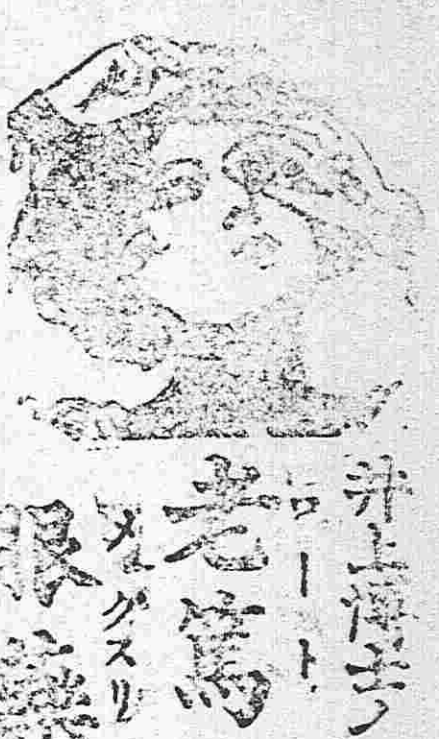 井上博士ノ
ロート
老篤
メグスリ
眼藥